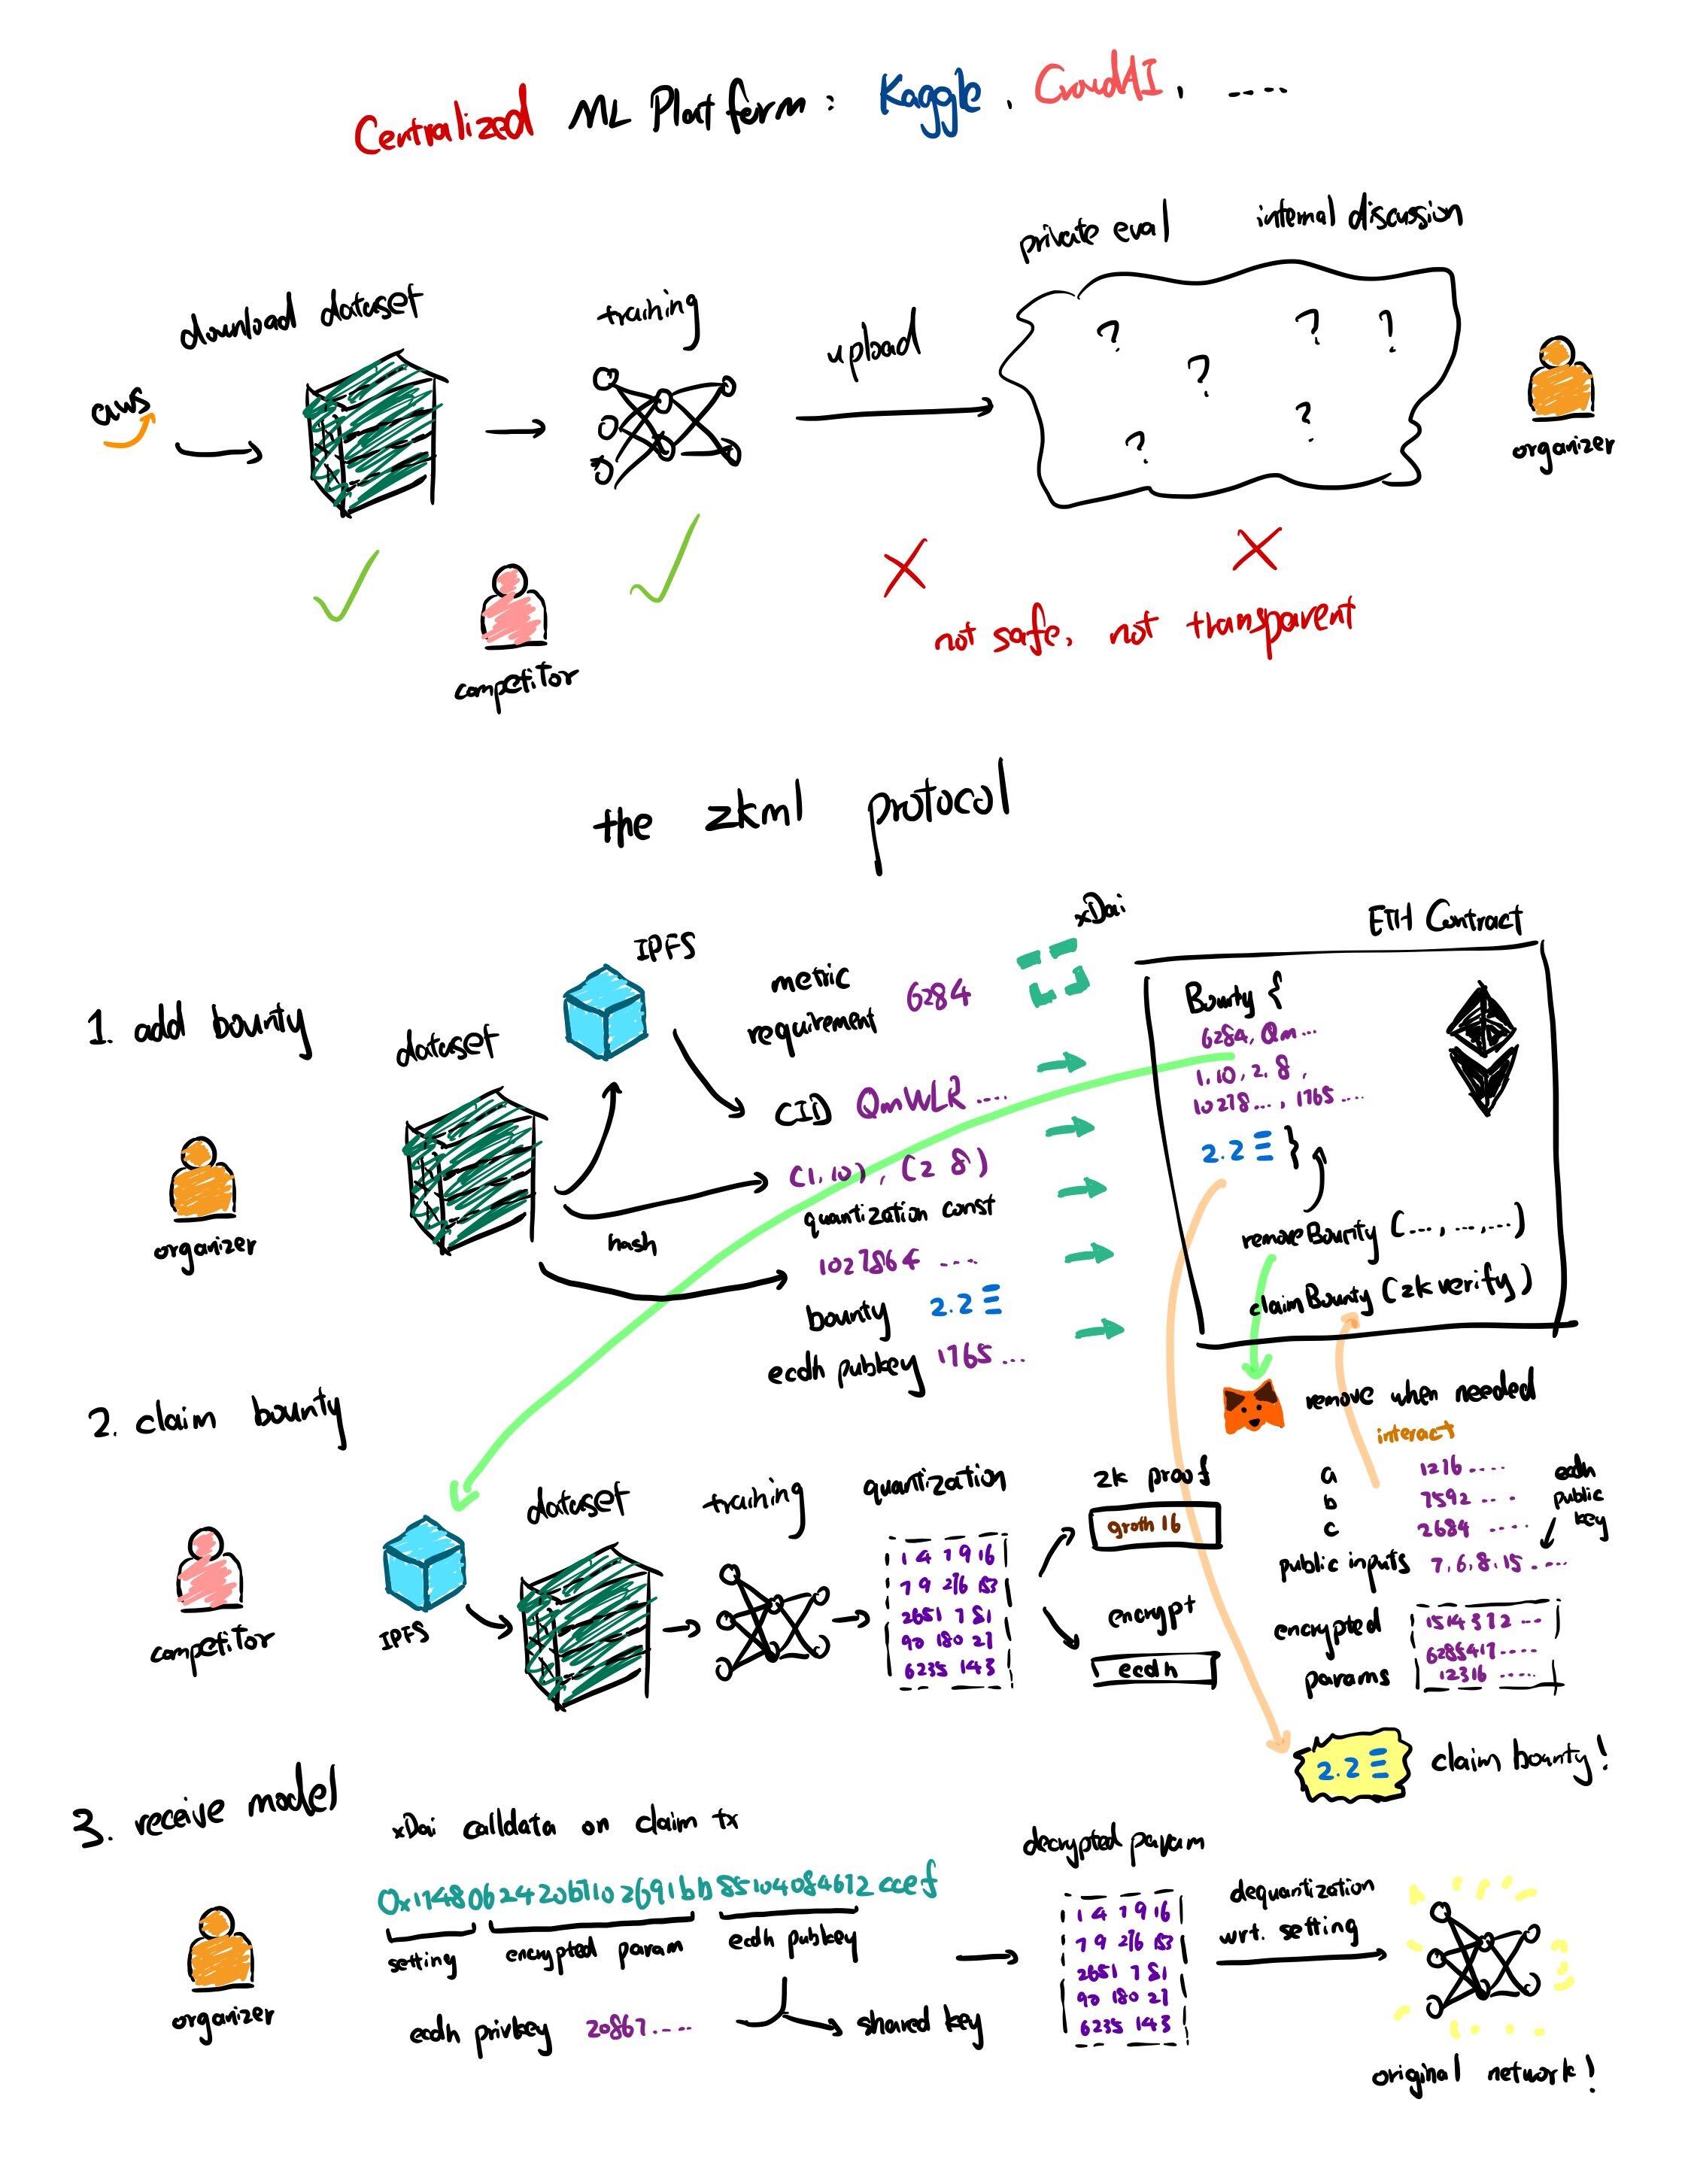 Centralized ML Platform : Kaggle , CrowdAI , ....
private eval internal discussion
download dataset training upload
aws
? ? ? ? ? ? ?
organizer
competitor
not safe, not transparent
the zkml protocol
1. add bounty
organizer
dataset
IPFS
hash
metric requirement 6284
CID QmWLR ....
(1,10), (2 8)
quantization const
1027864 ....
bounty 2.2 Ξ
ecdh pubkey 1765 ...
xDai
ETH Contract
Bounty {
6284, Qm...
1.10, 2.8,
10278..., 1765....
2.2 Ξ }
removeBounty (..., ..., ...)
claimBounty (zk verify)
remove when needed
interact
2. claim bounty
competitor
IPFS
dataset
training
quantization
1 4 7 9 16
7 9 276 153
2651 7 81
90 180 27
6235 143
zk proof
groth 16
encrypt
ecdh
a 1216 ....
b 7592 ....
c 2684 ....
public inputs 7.6.8.15 ....
ecdh public key
encrypted params
1514312 ...
6285417 ....
12316 ....
2.2 Ξ claim bounty!
3. receive model
organizer
xDai calldata on claim tx
setting encrypted param ecdh pubkey
ecdh privkey 20867.....
shared key
decrypted param
1 4 7 9 16
7 9 276 153
2651 7 81
90 180 27
6235 143
dequantization
wrt. setting
original network!